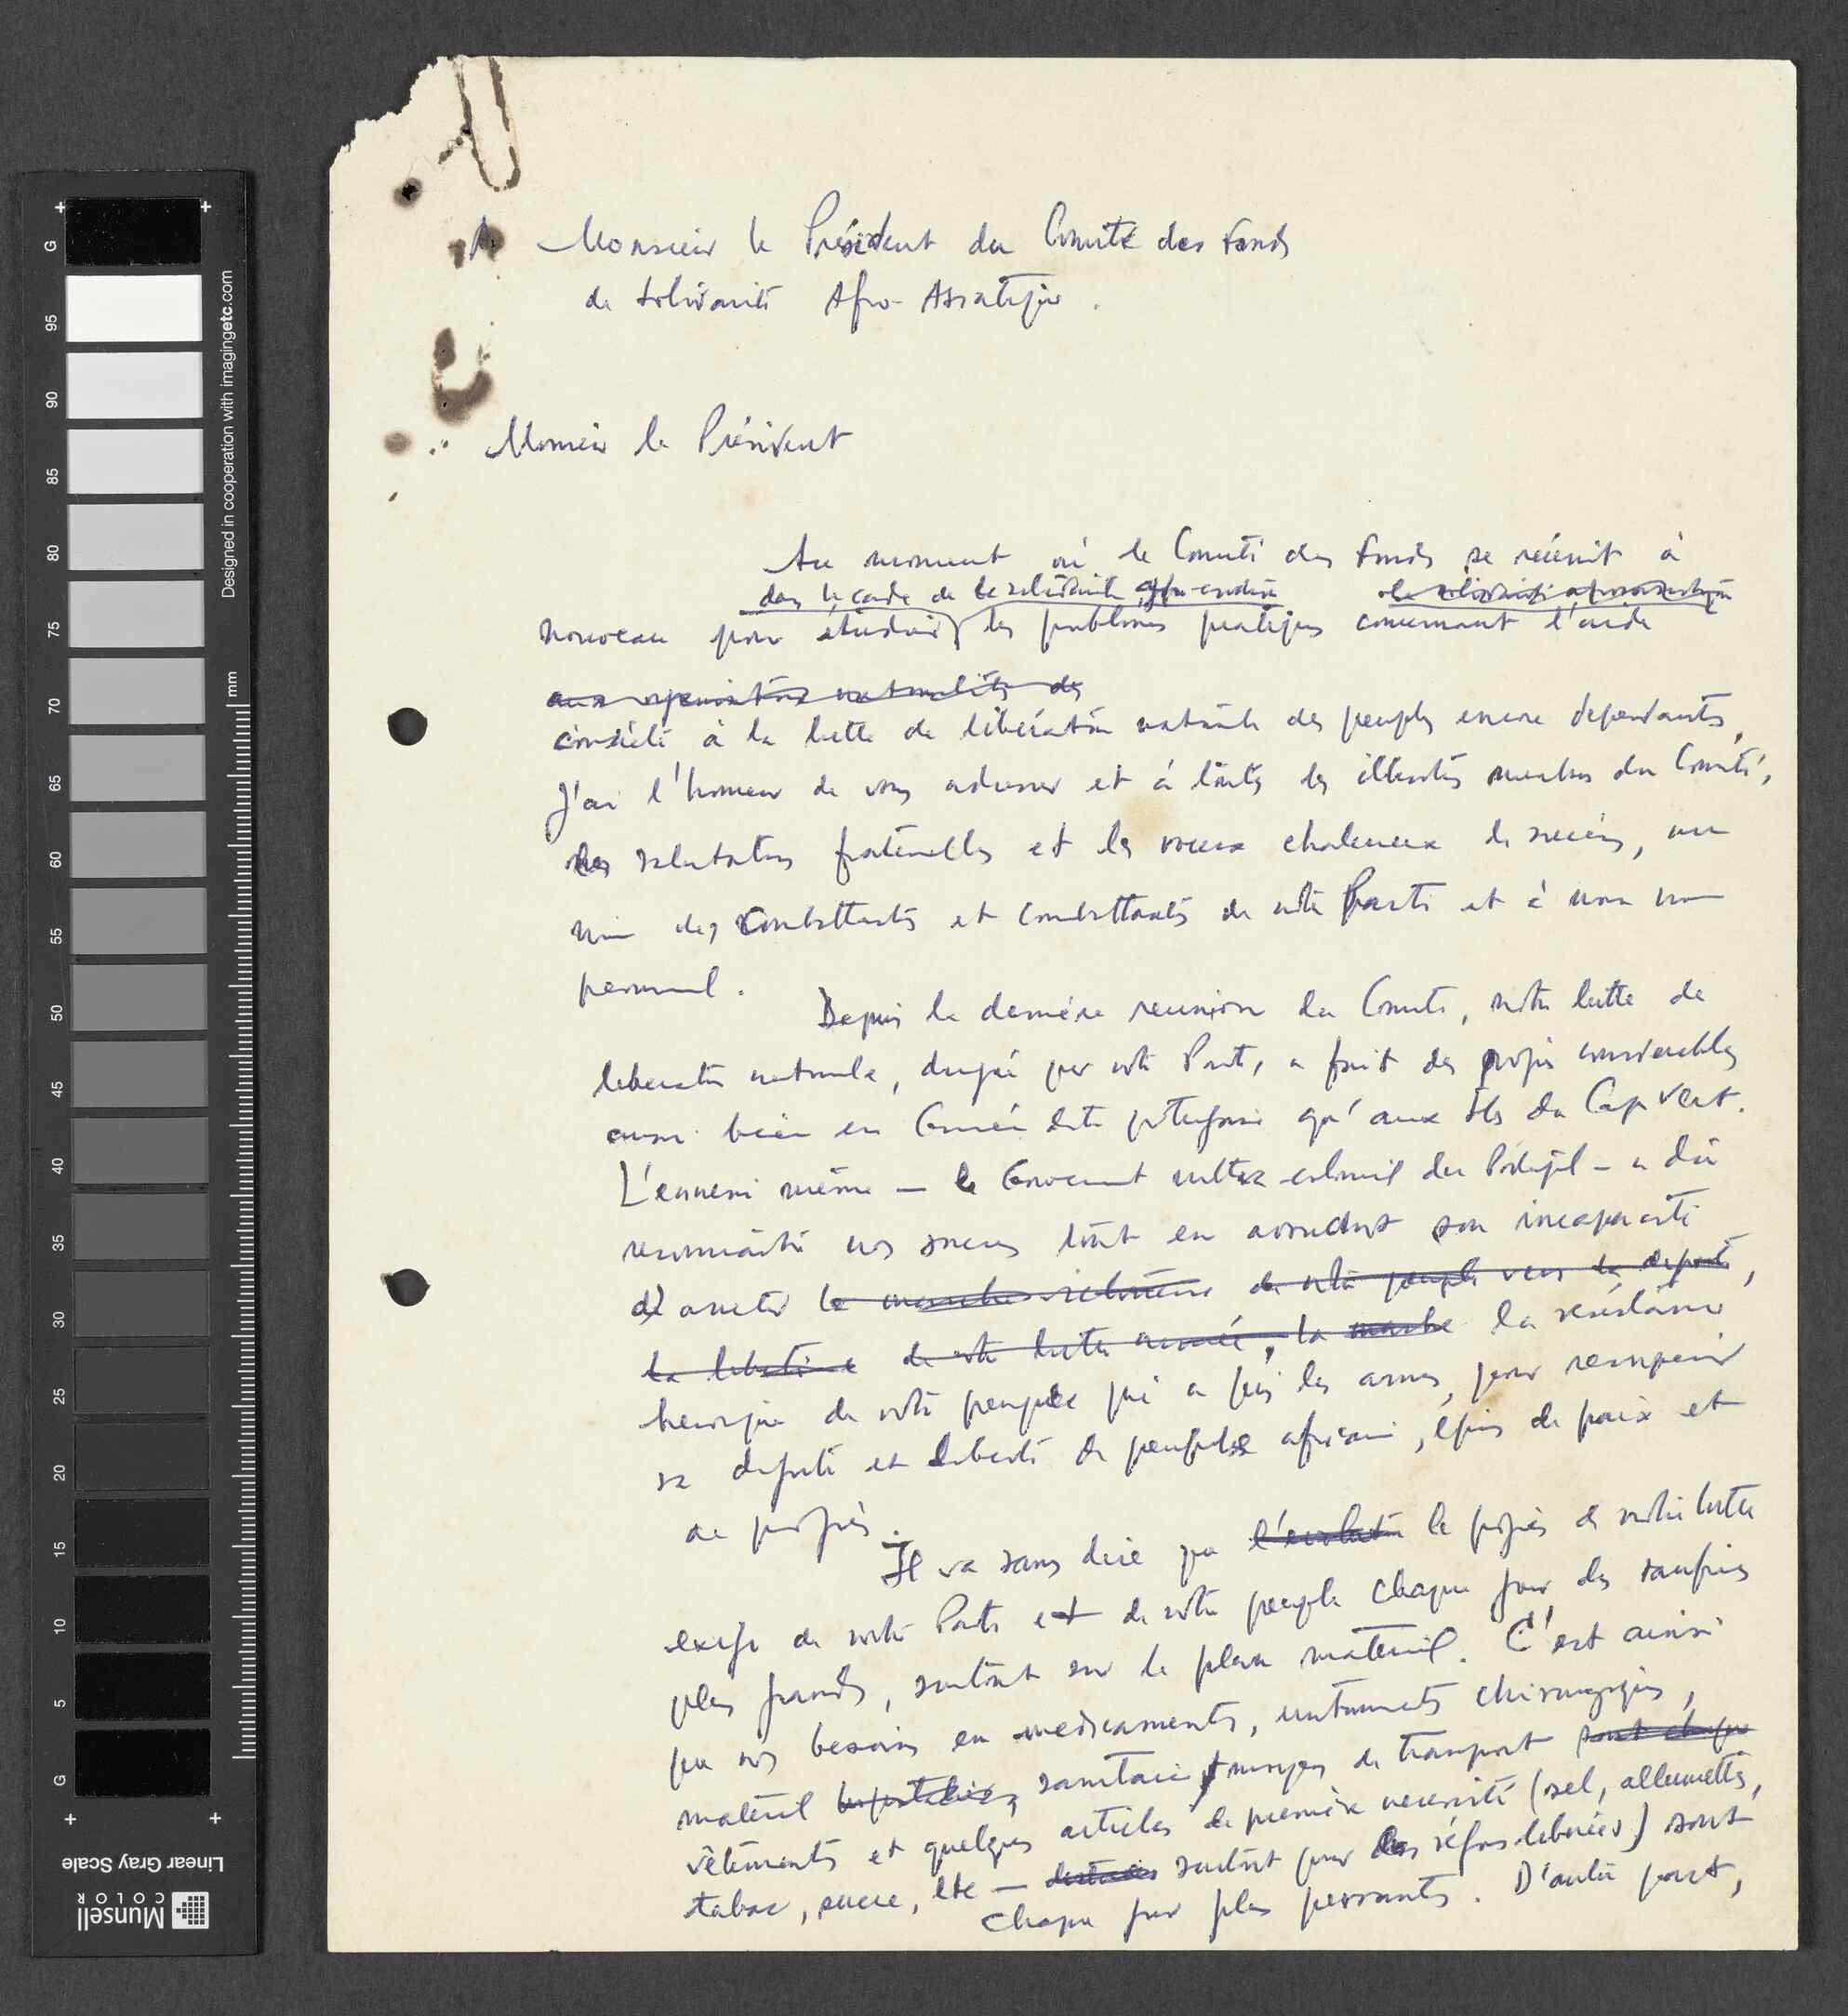 A Monsieur le Président du Comité des Fonds
de Solidarité Afro-Asiatique.
Monsieur le Président
Au moment où le Comité des Fonds se réunit à
dans le cadre de la solidarité afro-asiatique la solidarité afroasiatique
nouveau pour étudier les problèmes pratiques concernant l'aide
aux organisations nationalistes des
concrète à la lutte de libération nationale des peuples encore dépendants,
j'ai l'honneur de vous adresser et à touts les illustres membres du Comité,
les salutations fraternelles et les voeux chaleureux de succès, au
nom des combattants et combattantes de notre Parti et à mon nom
personnel.
Depuis la dernière reunion du Comité, notre lutte de
liberation nationale, dirigée par notre Parti, a fait des progrès considerables
aussi bien en Guinée dite portugaise qu'aux îles du Cap Vert.
L'ennemi même — le Gouvernement ultra-colonial du Portugal — a dû
reconnaître nos succès tout en son incapacité
d'arreter la marche de notre peuple vers la dignité,
la liberté de notre lutte armée, la marche la résistance
heroique de notre peuple qui a pris les armes, pour recuperer
sa dignité et liberté de peuple africain, épris de paix et
de progrès.
Il va sans dire que l'evolution le progrès de notre lutte
exige de notre Parti et de notre peuple chaque jour des sacrifices
plus grands, surtout sur le plan materiel. C'est ainsi
que nos besoins en medicaments, instruments chirurgiques,
matériel hospitalier, sanitaire, moyens de transport sont chaque
vêtements et quelques articles de première necessité (sel, allumettes,
tabac, sucre, etc — destinés surtout pour les régions liberées) sont
chaque jour plus pressants. D'autre part,
mm
Designed in cooperation with imagingetc.com
G
95
90
85
80
75
70
65
60
55
50
45
40
35
30
25
20
15
10
5
G
Linear Gray Scale
Munsell
COLOR